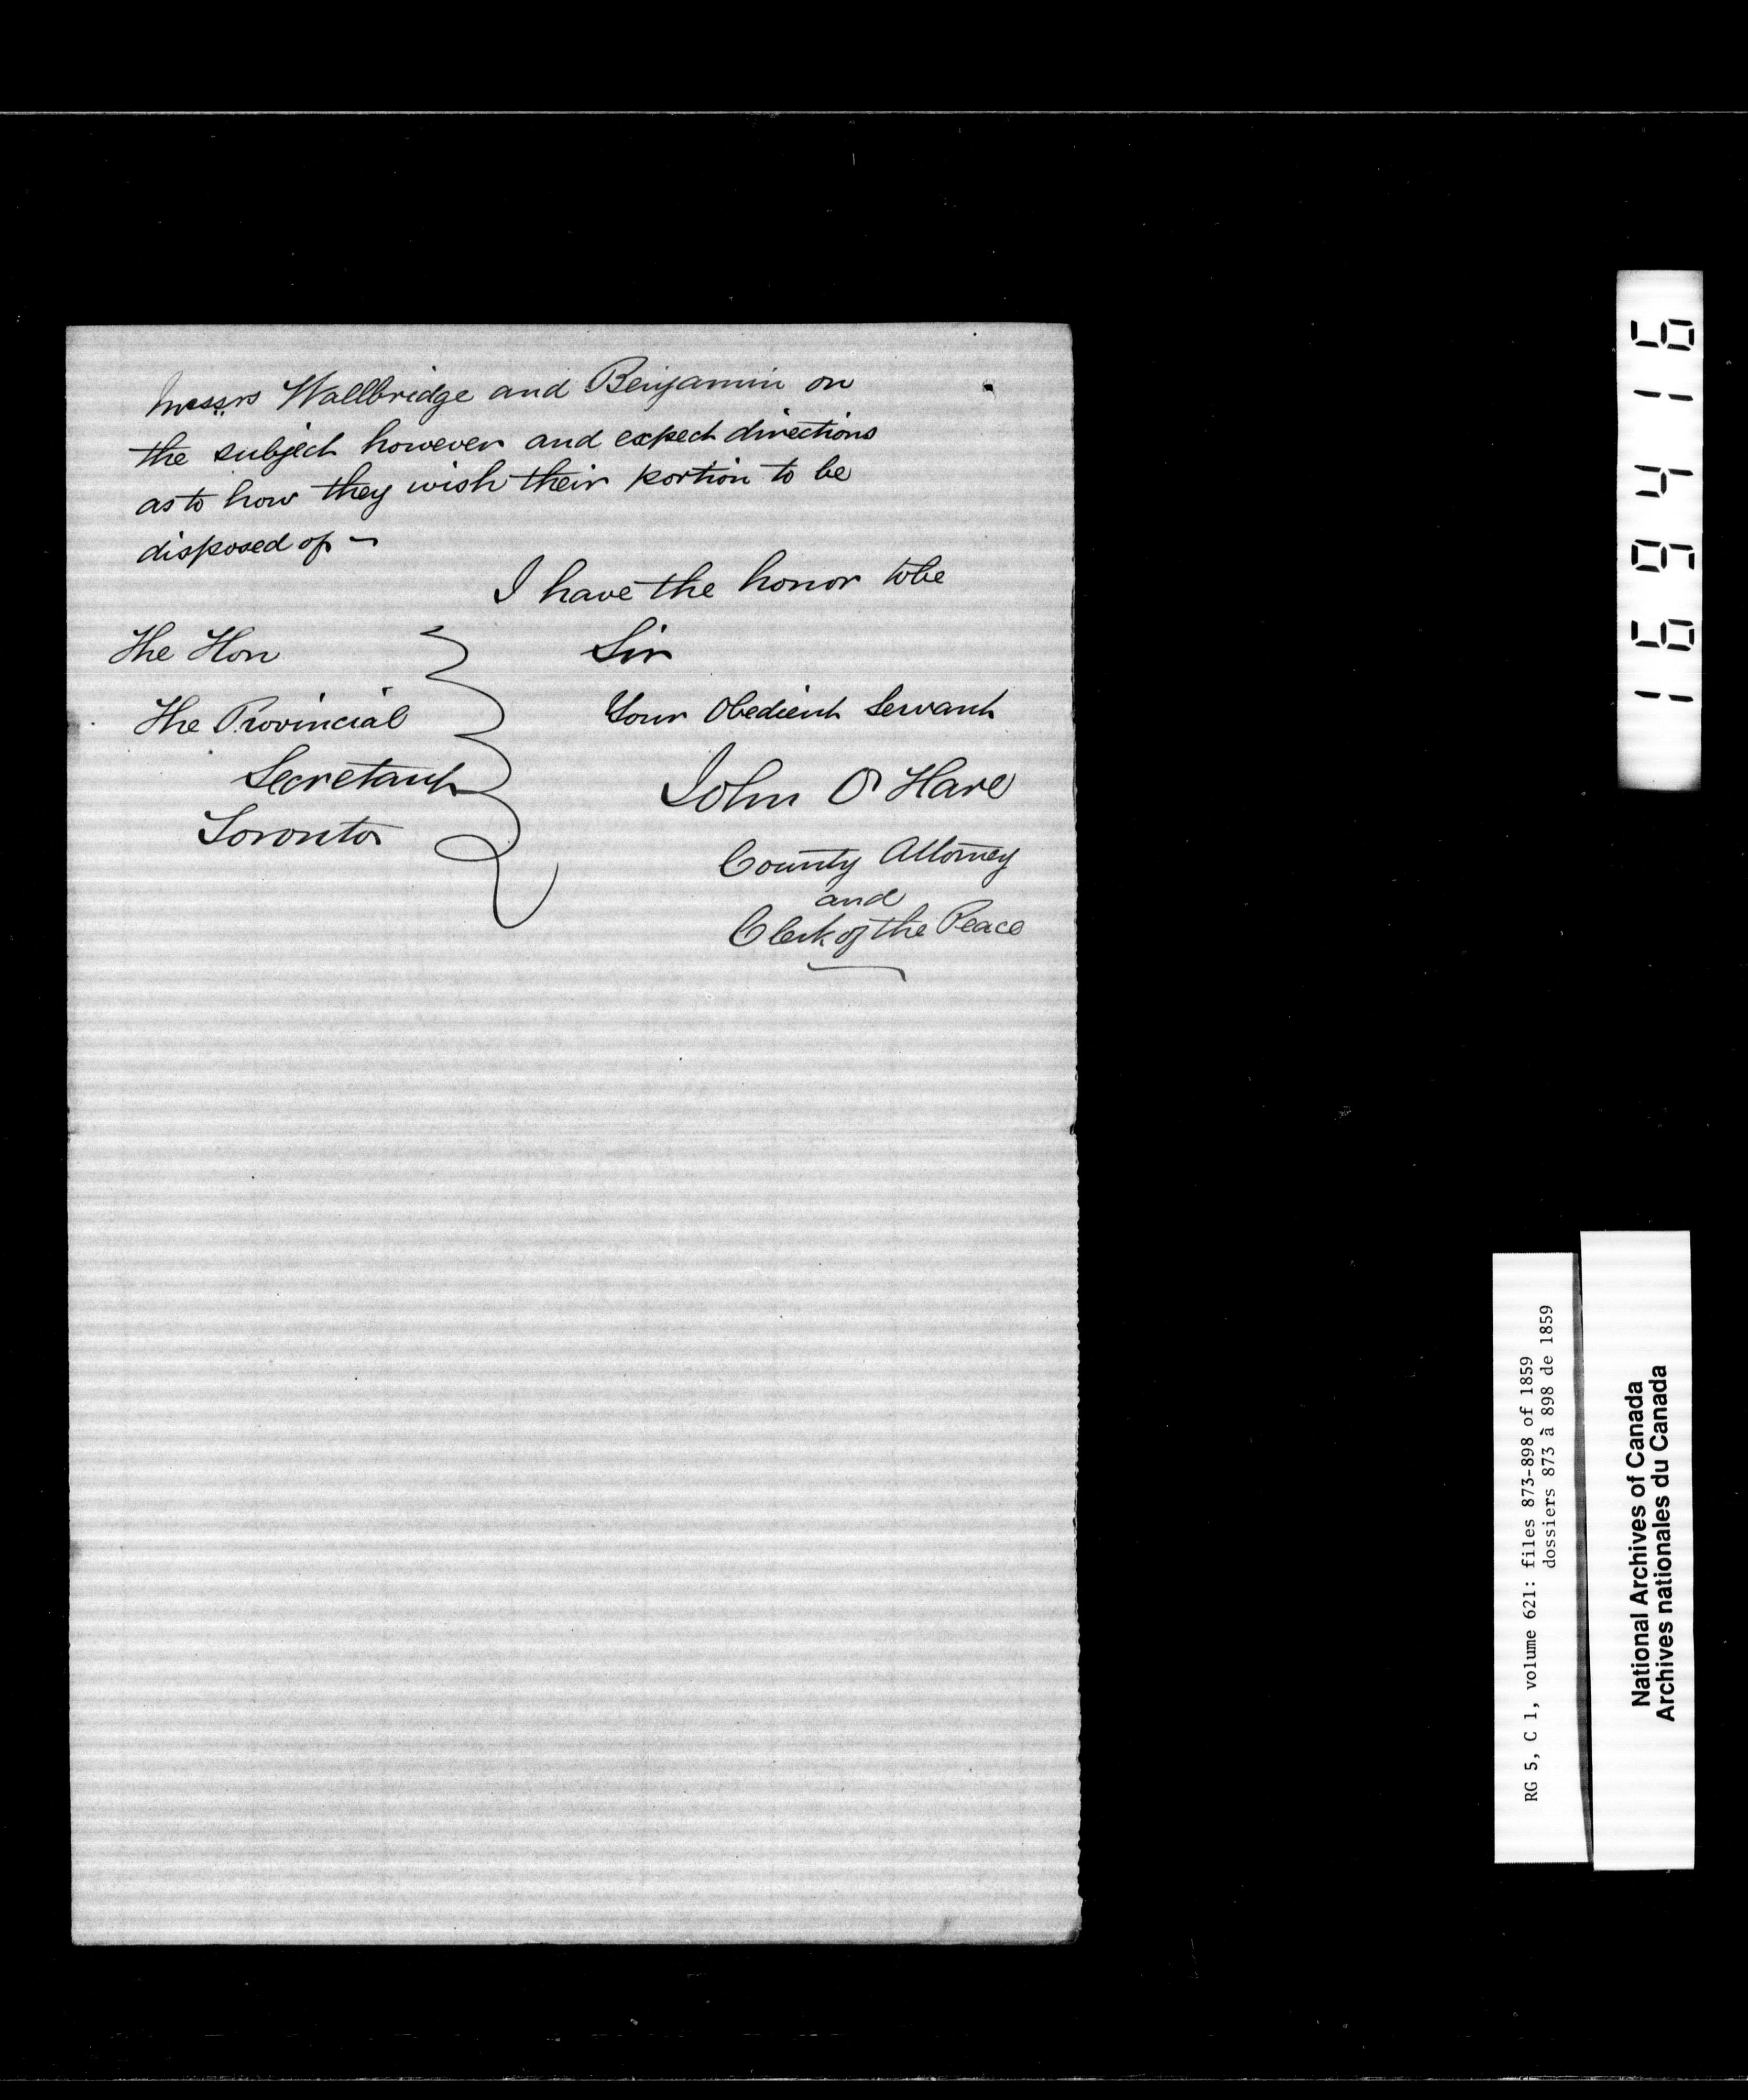 Messrs Wallbridge and Benjamin on
the subject however and expect directions
as to how they wish their portion to be
disposed of –
I have the honor to be
Sir
Your Obedient Servant
John O'Hare
County Attorney
and
Clerk of the Peace
The Hon
The Provincial
Secretary
Toronto
169416
RG 5, C 1, volume 621: files 873-898 of 1859
dossiers 873 à 898 de 1859
National Archives of Canada
Archives nationales du Canada